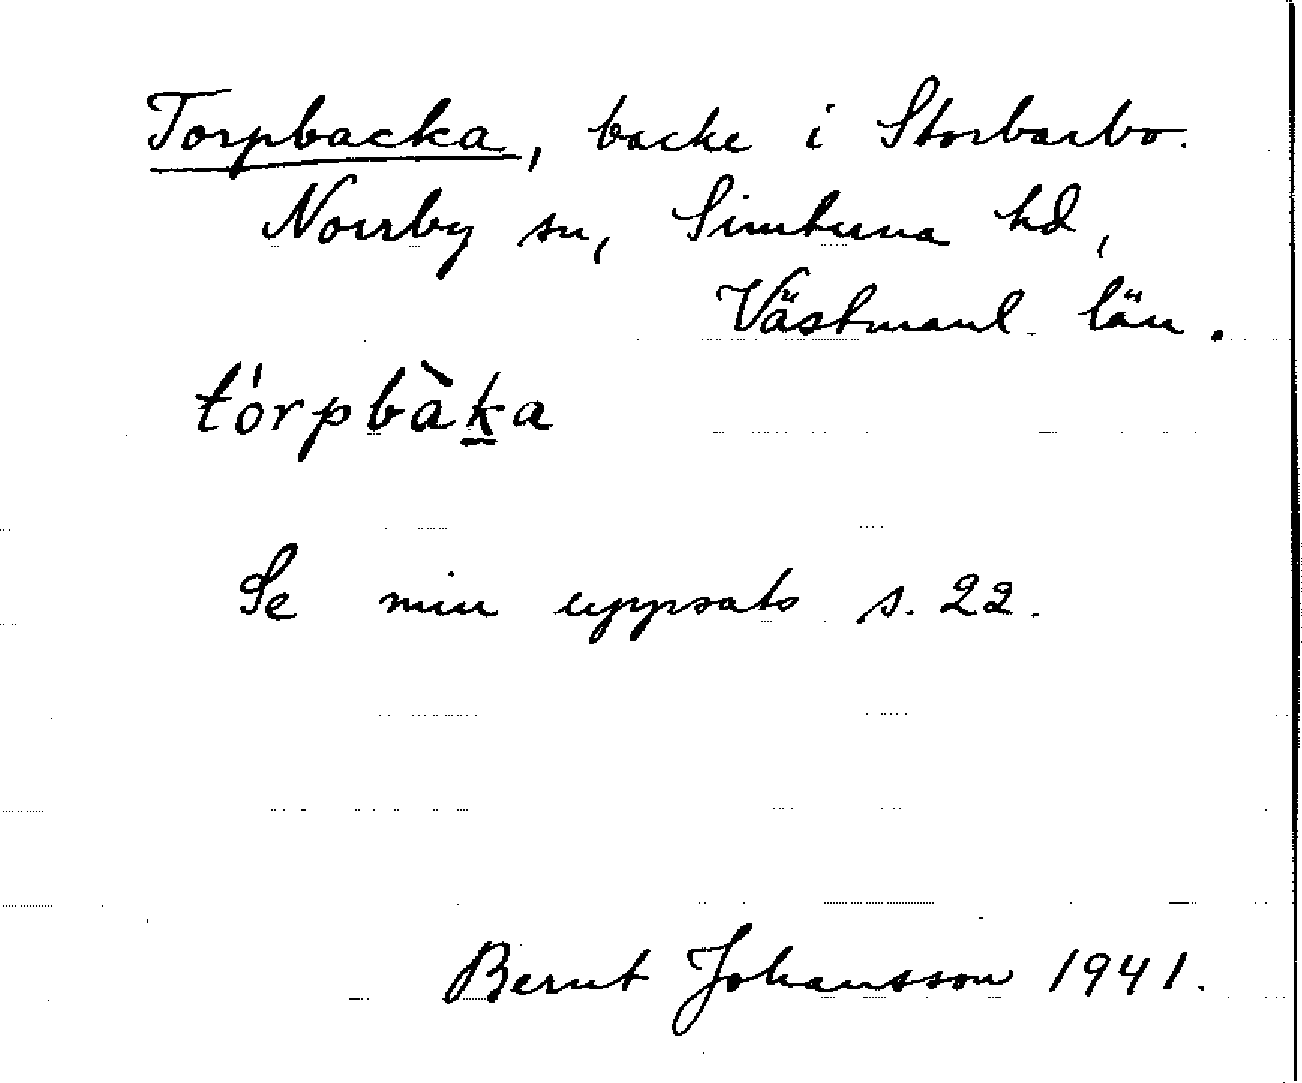 Torpbacka, backe i Storbarbo.
Norrby sn, Simtuna hd,
Västmanl. län.
tórpbàka
Se min uppsats s. 22.
Bernt Johansson 1941.